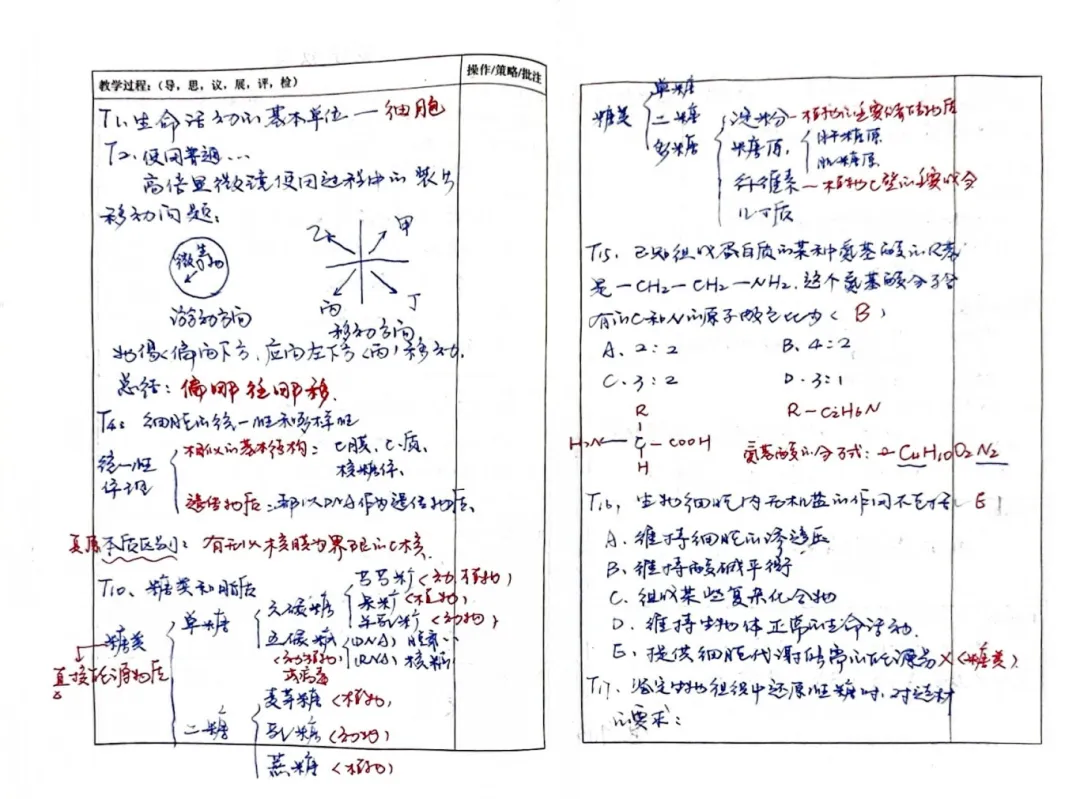 教学过程：（导，思，议，展，评，检）
操作/策略/批注
T1、生命活动的基本单位 — 细胞
T2、使用普通…
高倍显微镜使用过程中的装片
移动问题：
微生物
游动方向
乙 甲
丙 丁
移动方向
偏向下方，应向左下方（丙）移动.
总结：偏哪往哪移.
T4：细胞的统一性和多样性
统一性体现
相似的基本结构：C膜、C质、
核糖体.
遗传物质：都以DNA作为遗传物质、
真原本质区别：有无以核膜为界限的C核.
T10、糖类和脂质
糖类
直接能源物质
单糖
六碳糖
葡萄糖（动植物）
果糖（植物）
半乳糖（动物）
五碳糖
（动植物
或病毒
（DNA）脱氧…
（RNA）核糖
二糖
麦芽糖（植物）
乳糖（动物）
蔗糖（植物）
糖类
单糖
二糖
多糖
淀粉 — 植物的主要储存物质
糖原
肝糖原
肌糖原
纤维素 — 植物C壁的主要成分
几丁质
T15、已知组成蛋白质的某种氨基酸的R基
是 —CH2—CH2—NH2，这个氨基酸分子含
有的C和N的原子数之比为（ B ）
A、2：2 B、4：2
C、3：2 D、3：1
R R—C2H6N
H2N—C—COOH
H
氨基酸的分子式： C4H10O2N2
T16、生物细胞内无机盐的作用不包括 E
A、维持细胞的渗透压
B、维持酸碱平衡
C、组成某些复杂化合物
D、维持生物体正常的生命活动.
E、提供细胞代谢所需的能源物 ×（糖类）
T17、鉴定生物组织中还原性糖时，对选材
的要求：